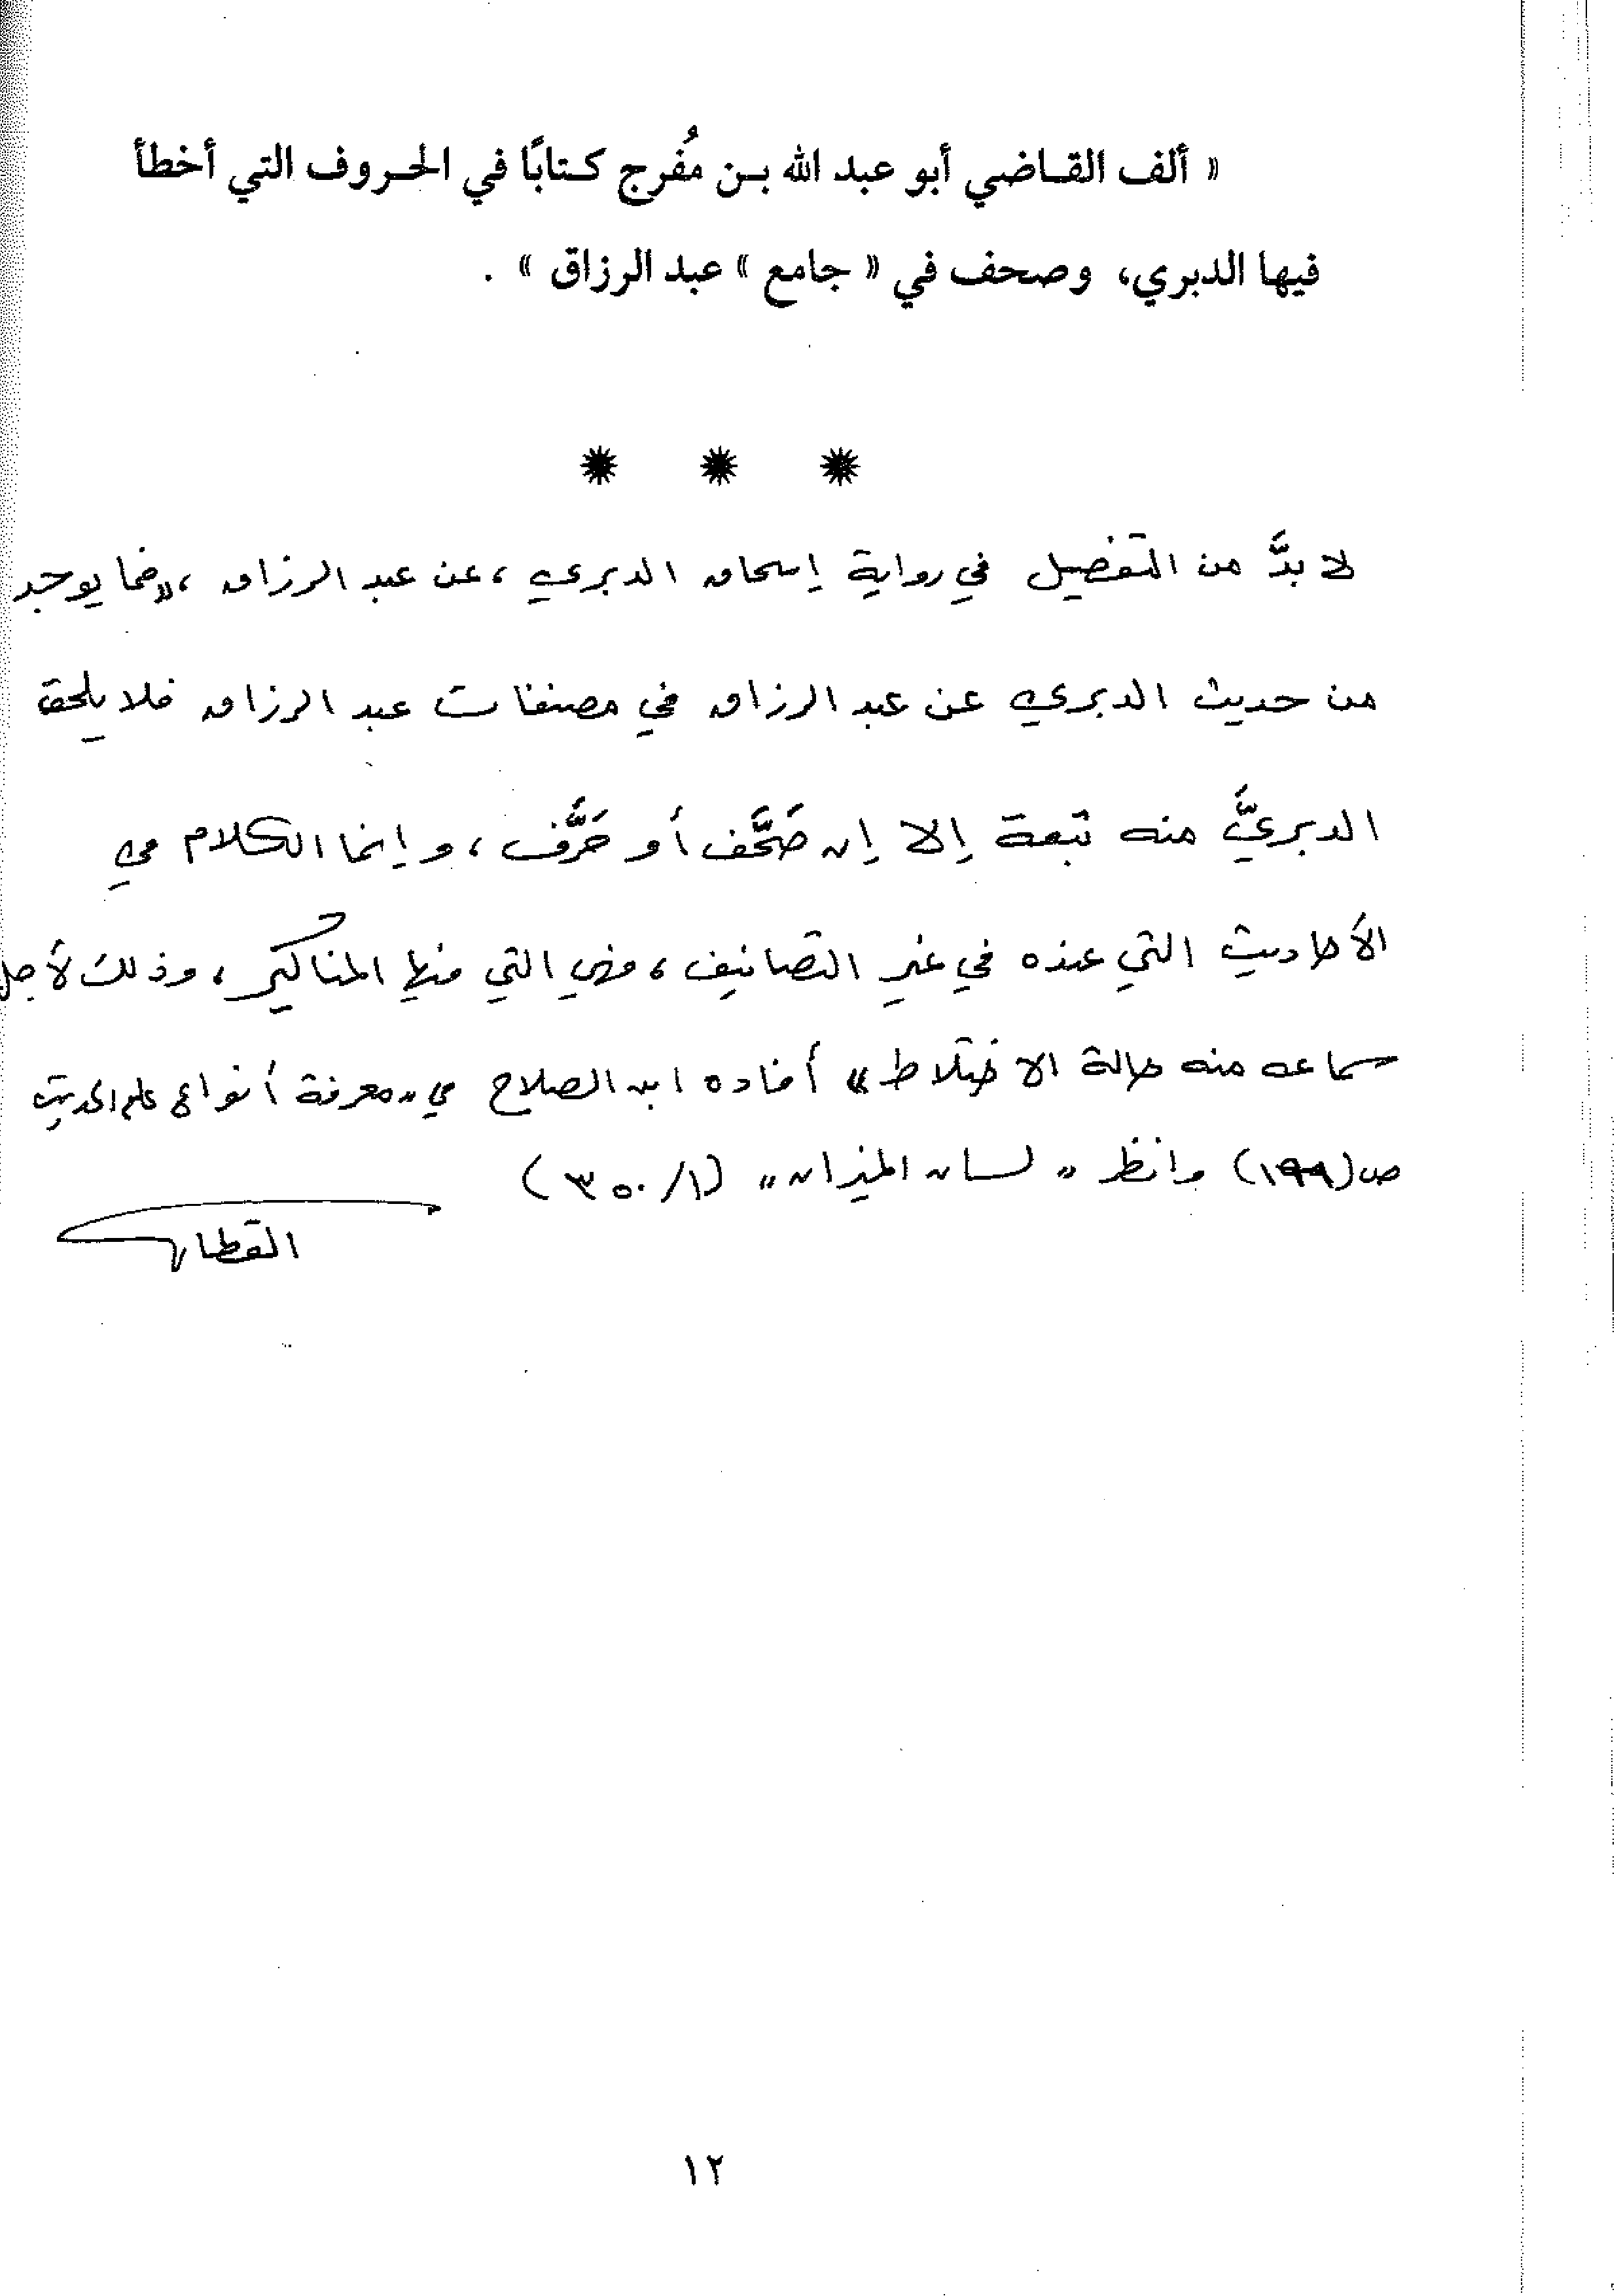 « ألف القاضي أبو عبد الله بن مُفرج كتابًا في الحروف التي أخطأ
فيها الدبري، وصحف في « جامع » عبد الرزاق » .
لا بدَّ من التفصيل في رواية إسحاق الدبري ، عن عبد الرزاق ، «فما يوجد
من حديث الدبري عن عبد الرزاق في مصنفات عبد الرزاق فلا يلحق
الدبريَّ منه تبعة إلا إن صَحَّف أو حَرَّف ، وإنما الكلام في
الأحاديث التي عنده في غير التصانيف ، فهي التي فيها المناكير ، وذلك لأجل
سماعه منه حالة الاختلاط » أفاده ابن الصلاح في «معرفة أنواع علم الحديث
ص (١٩٩) وانظر « لسان الميزان » (١/ ٣٥٠)
القطان
١٢